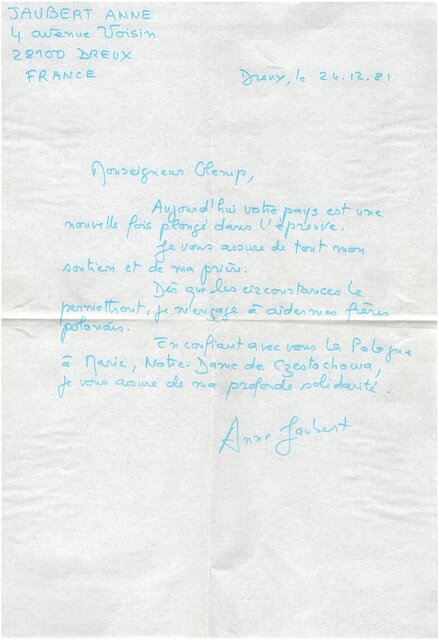 JAUBERT ANNE
4 avenue Voisin
28100 DREUX
FRANCE
Dreux, le 24.12.81
Monseigneur Glemp,
Aujourd'hui votre pays est une
nouvelle fois plongé dans l'épreuve.
Je vous assure de tout mon
soutien et de ma prière.
Dès que les circonstances le
permettront, je m'engage à aider mes frères
polonais.
En confiant avec vous la Pologne
à Marie, Notre-Dame de Czestochowa,
je vous assure de ma profonde solidarité.
Anne Jaubert